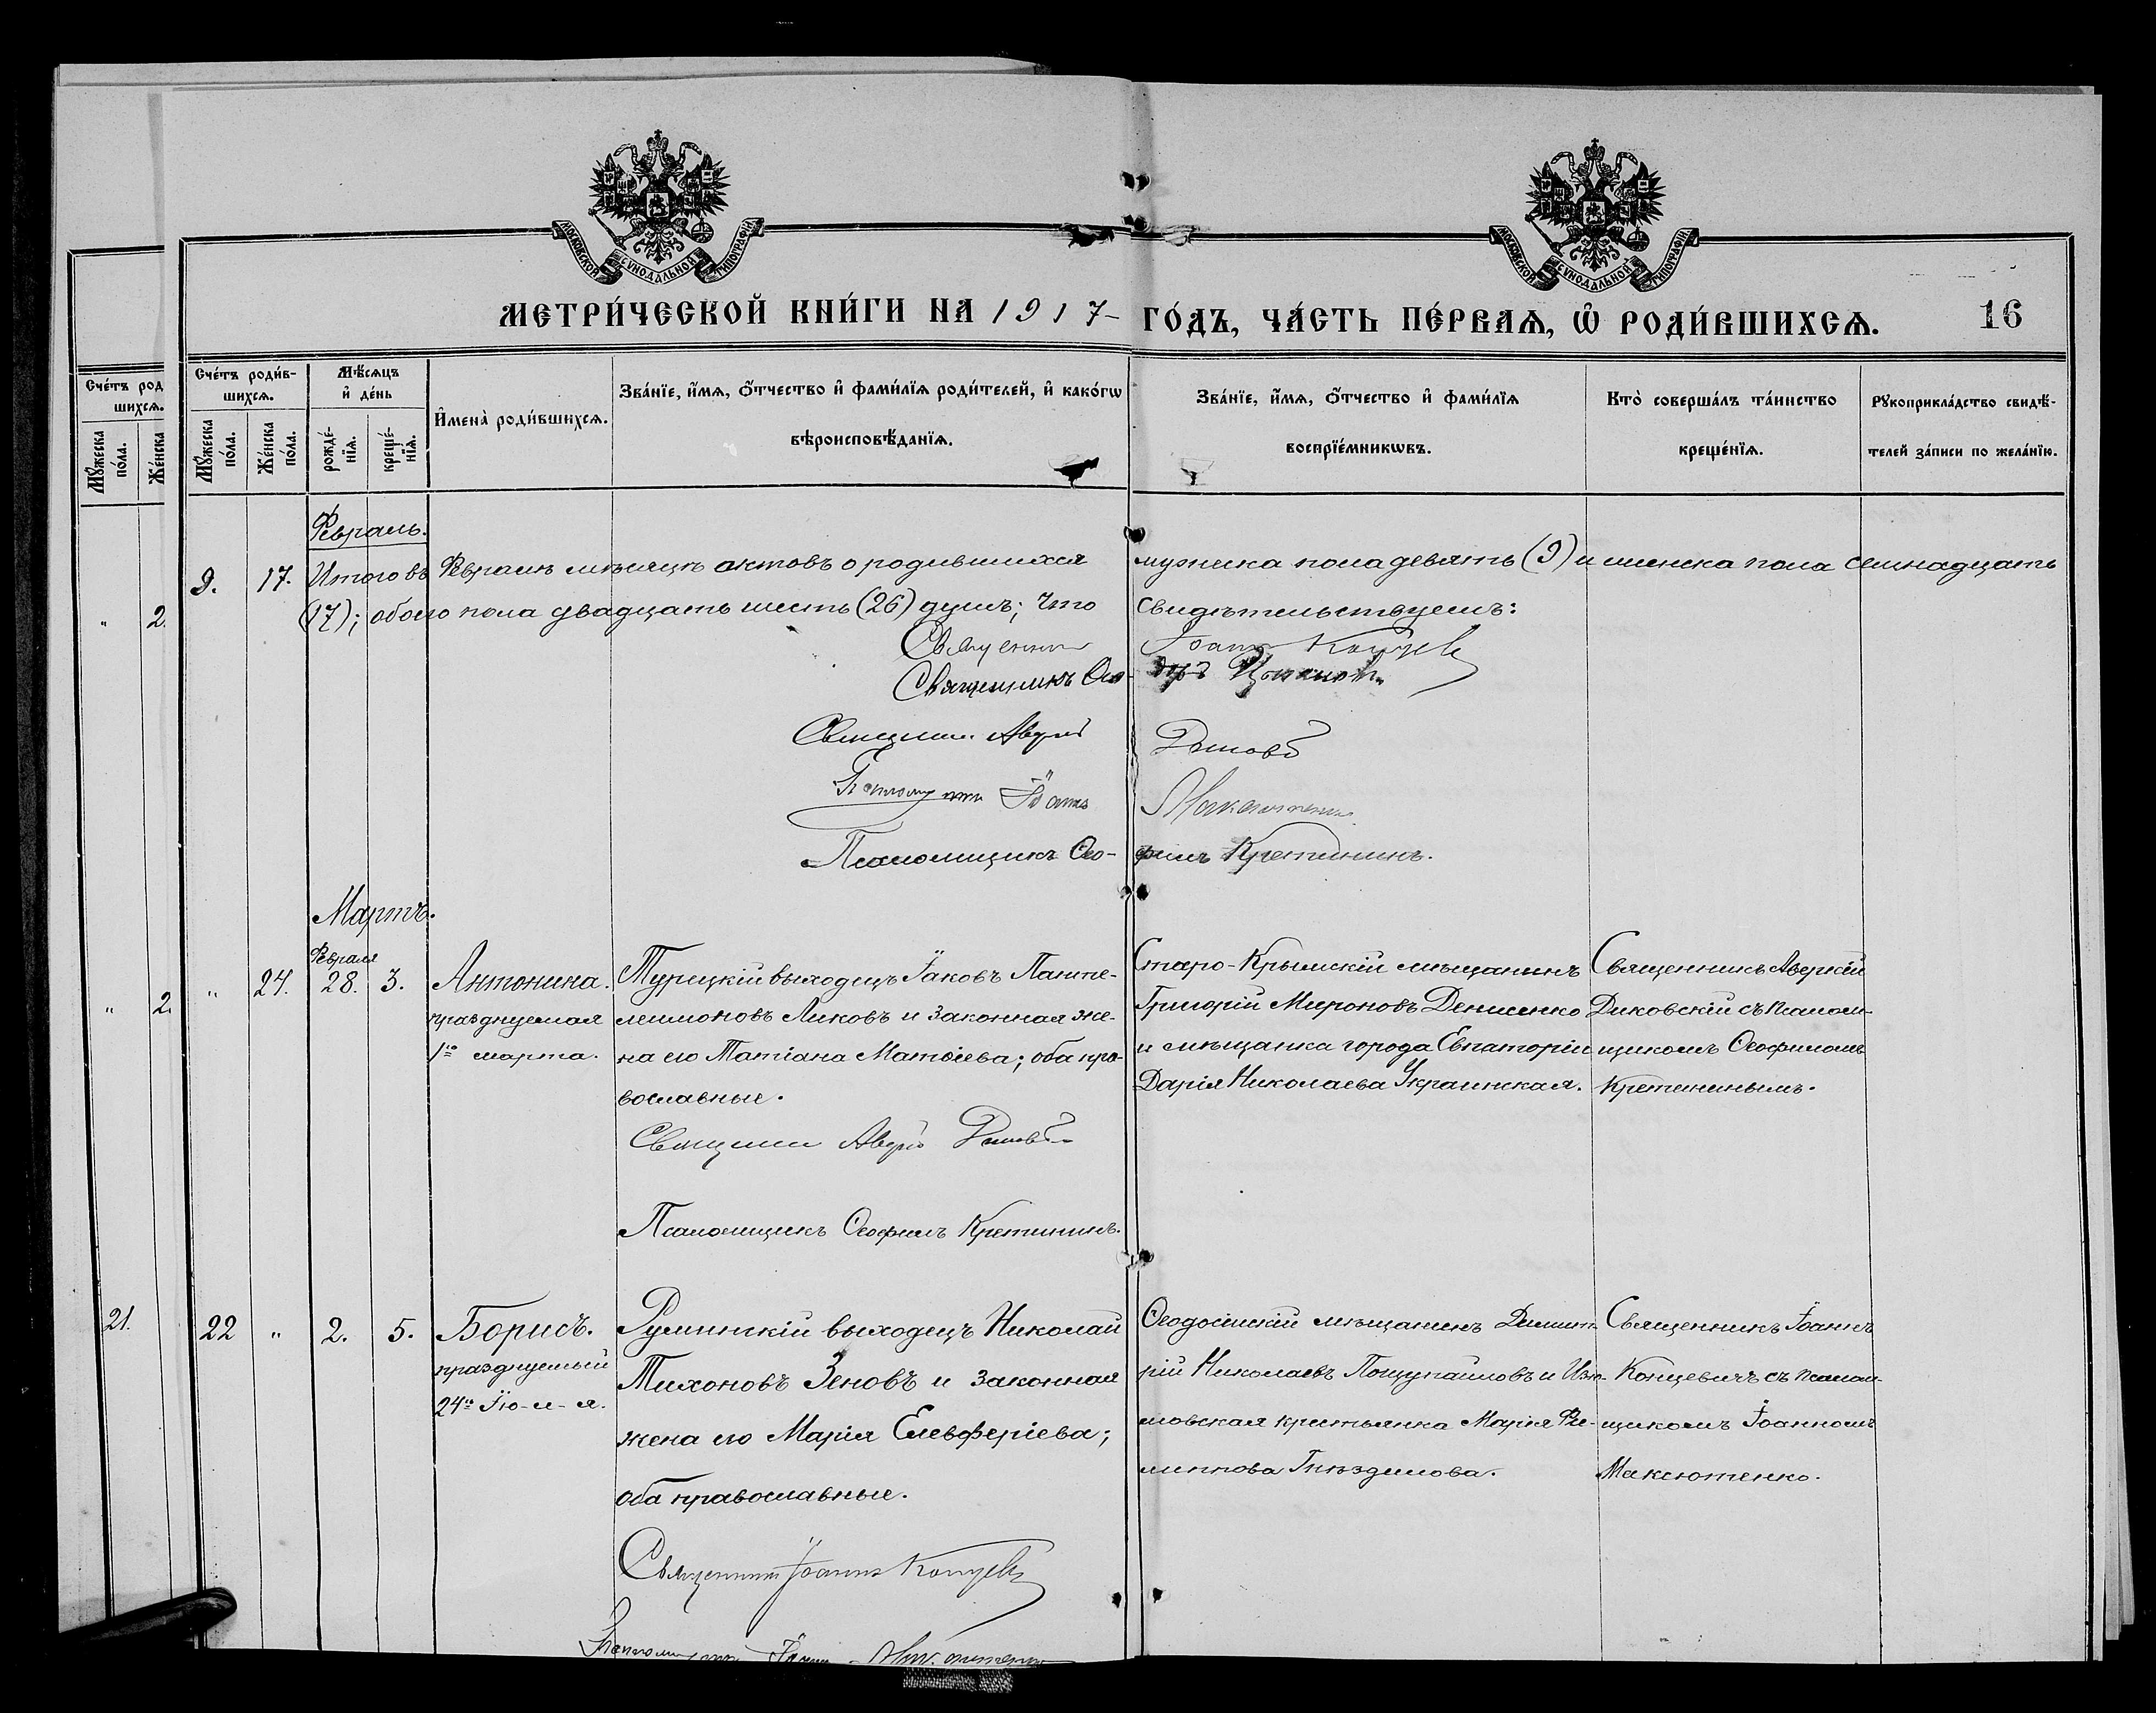 МОСКОВСКОЙ СѴНОДАЛЬНОЙ ТИПОГРАФІИ
МОСКОВСКОЙ СѴНОДАЛЬНОЙ ТИПОГРАФІИ
МЕТРИ́ЧЕСКОЙ КНИ́ГИ НА 1917 ГО́ДЪ, ЧА́СТЬ ПЕ́РВАѦ, Ѡ҆ РОДИ́ВШИХСѦ.
16
Сче́тъ род
шихсѧ.
Мꙋ́жеска по́ла.
Же́нска
Сче́тъ роди́в-
шихсѧ.
Мꙋ́жеска по́ла.
Же́нска по́ла.
Мѣ́сѧцъ
и҆ де́нь
рожде́-
нїѧ.
креще́-
нїѧ.
И҆мена̀ роди́вшихсѧ.
Зва́нїе, и҆́мѧ, ѻ҆́тчество и҆ фами́лїѧ роди́телей, и҆ како́гѡ
вѣроисповѣ́данїѧ.
Зва́нїе, и҆́мѧ, ѻ҆́тчество и҆ фами́лїѧ
воспрїе́мникѡвъ.
Кто̀ соверша́лъ та́инство
креще́нїѧ.
Рꙋкоприкла́дство свидѣ́-
телей за́писи по жела́нїю.
Февраль.
9. 17. Итого въ Февралѣ мѣсяцѣ актовъ о родившихся мужеска пола девять (9) и женска пола семнадцать
(17); обоего пола двадцать шесть (26) душъ; что свидѣтельствуемъ:
Священникъ Іоаннъ Концевичъ
Священникъ
Священникъ Аверкій
Псаломщикъ Іоаннъ Максютенко
Псаломщикъ Ѳеофилъ Кретининъ.
" 2.
Мартъ.
Февраля
" 24. 28. 3.
Антонина.
празднуемая
1го марта.
Турецкій выходецъ Іаковъ Панте-
леимоновъ Ликовъ и законная же-
на его Татіана Матѳіева; оба пра-
вославные.
Священникъ Аверкій
Псаломщикъ Ѳеофилъ Кретининъ.
Старо-Крымскій мѣщанинъ
Григорій Мироновъ Денисенко
и мѣщанка города Евпаторіи
Дарія Николаева Украинская.
Священникъ Аверкій
Диковскій съ псалом-
щикомъ Ѳеофиломъ
Кретининымъ.
" 2.
21.
22 " 2. 5.
Борисъ.
празднуемый
24го Ію-л-я.
Румынскій выходецъ Николай
Тихоновъ Зеновъ и законная
жена его Марія Елевферіева;
оба православные.
Священникъ Іоаннъ Концевичъ
Псаломщикъ Іоаннъ Максютенко
Ѳеодосійскій мѣщанинъ Димит-
рій Николаевъ Пощупайловъ и Изю-
мовская крестьянка Марія Фи-
липпова Гнѣздилова.
Священникъ Іоаннъ
Концевичъ съ псалом-
щикомъ Іоанномъ
Максютенко.